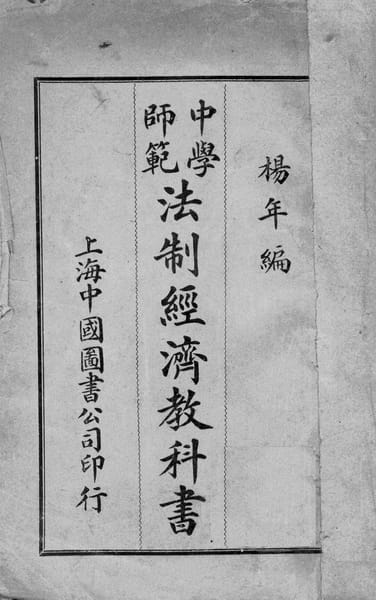 楊年編
中學
師範
法制經濟教科書
上海中國圖書公司印行